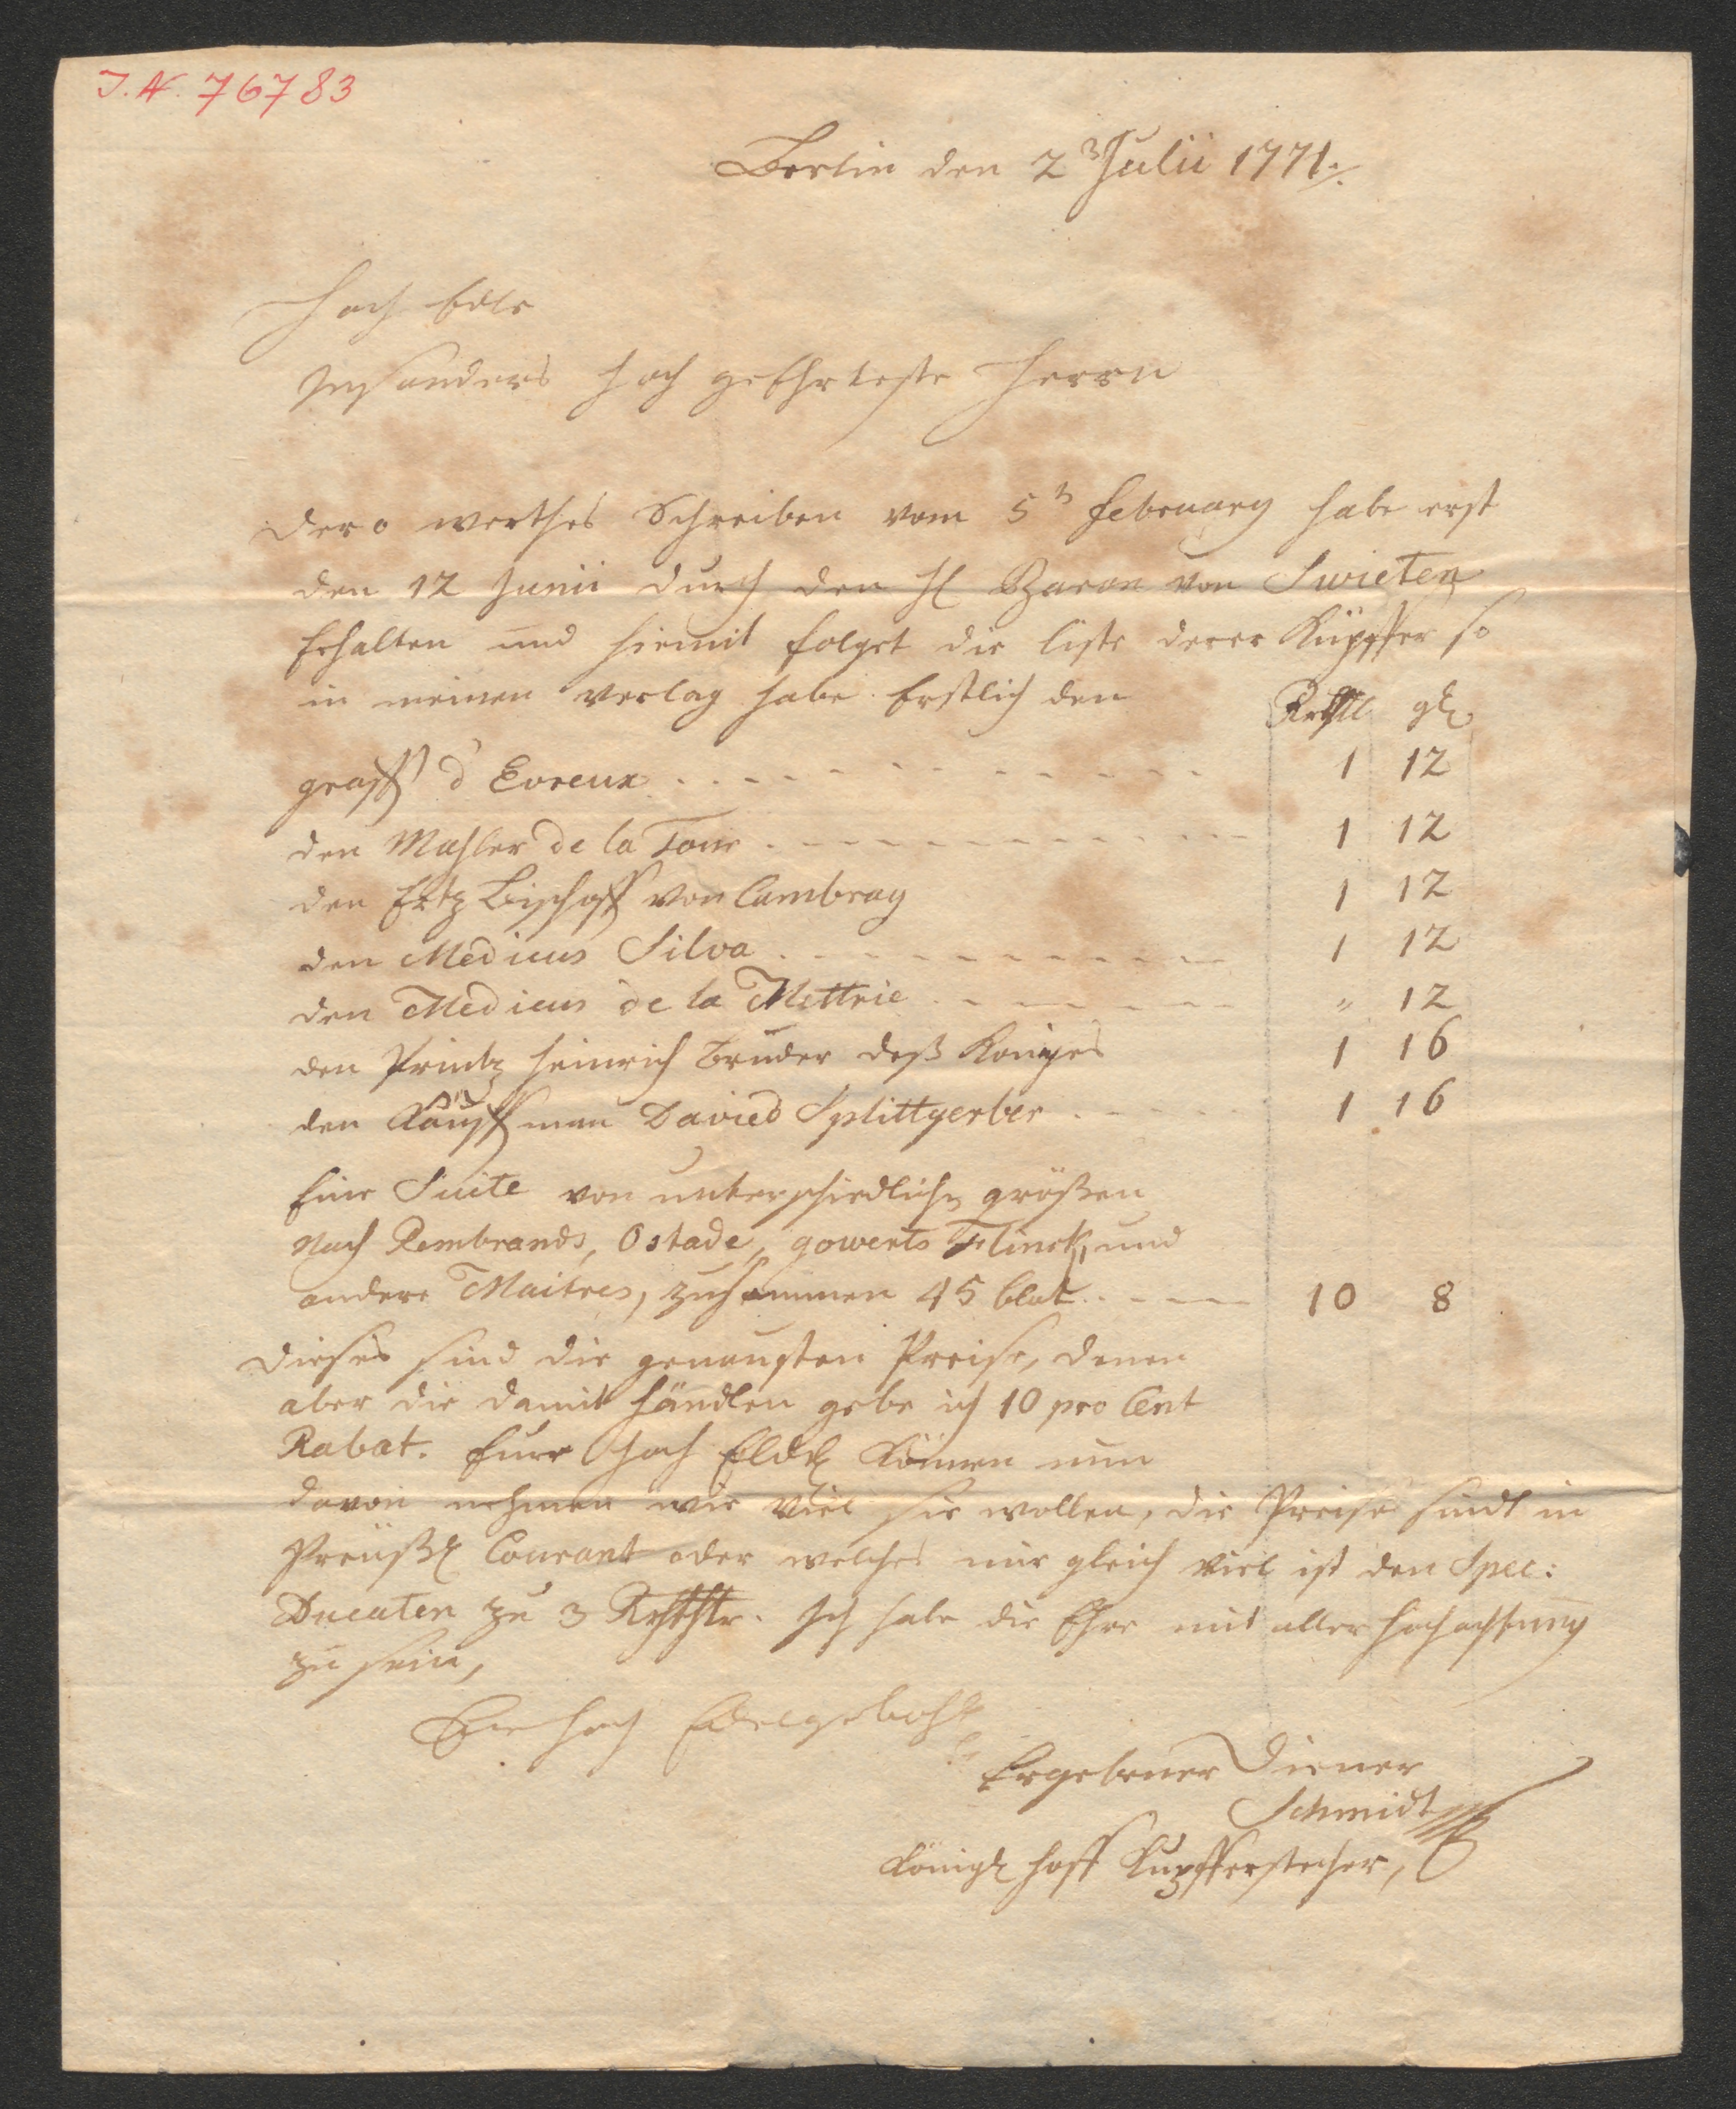 J. N. 76783
Berlin den 2ᵗ Julii 1771.
Hoch Edle
Insonders Hoch geEhrteste Herrn
Dero werthes Schreiben vom 5ᵗ February habe erst
den 12 Junii durch den H Baron von Swieten
Erhalten und hiemit folget die liste derer Küpffer so
in meinen Verlag habe. Erstlich den
Rthll gl
graff d'Evreux 1 12
den Mahler de la Tour 1 12
den Ertz Bischoff von Cambray 1 12
den Medicus Silva 1 12
den Medicus de la Mettrie " 12
den Printz Heinrich Bruder deß Königes 1 16
den Kauffman Davied Splittgerber 1 16
Eine Suite von unterschiedlichen größen
Nach Rembrands, Ostade, gowerts Flinck, und
andere Maitres, zusammen 45 blat 10 8
Dieses sind die genausten Preise, denen
aber die damit händlen gebe ich 10 pro Cent
Rabat. Eure Hoch Eldl Können nun
davon nehmen wie viel sie wollen, die Preise sindt in
Preüßl Courant oder welches mir gleich viel ist den Spec:
Ducaten zu 3 Rthlr. Ich habe die Ehre mit aller Hochachtung
zu sein,
Ew Hoch Edelgebohr
Ergebener Diener
Schmidt
Königl Hoff Kupfferstecher,